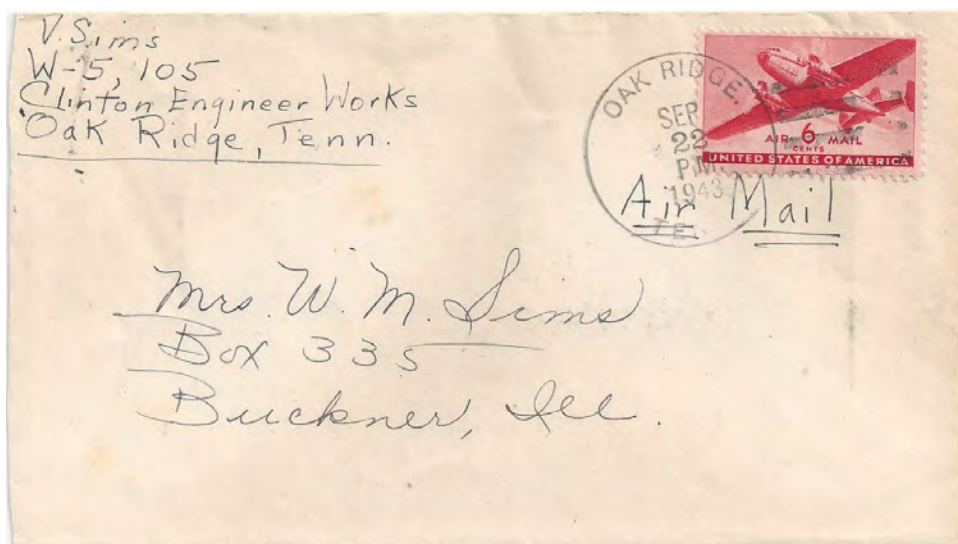 V. Sims
W-5, 105
Clinton Engineer Works
Oak Ridge, Tenn.
OAK RIDGE.
SEP
22
P.M.
1943
TE
AIR 6 MAIL
CENTS
UNITED STATES OF AMERICA
Air Mail
Mrs. W. M. Sims
Box 335
Buckner, Ill.